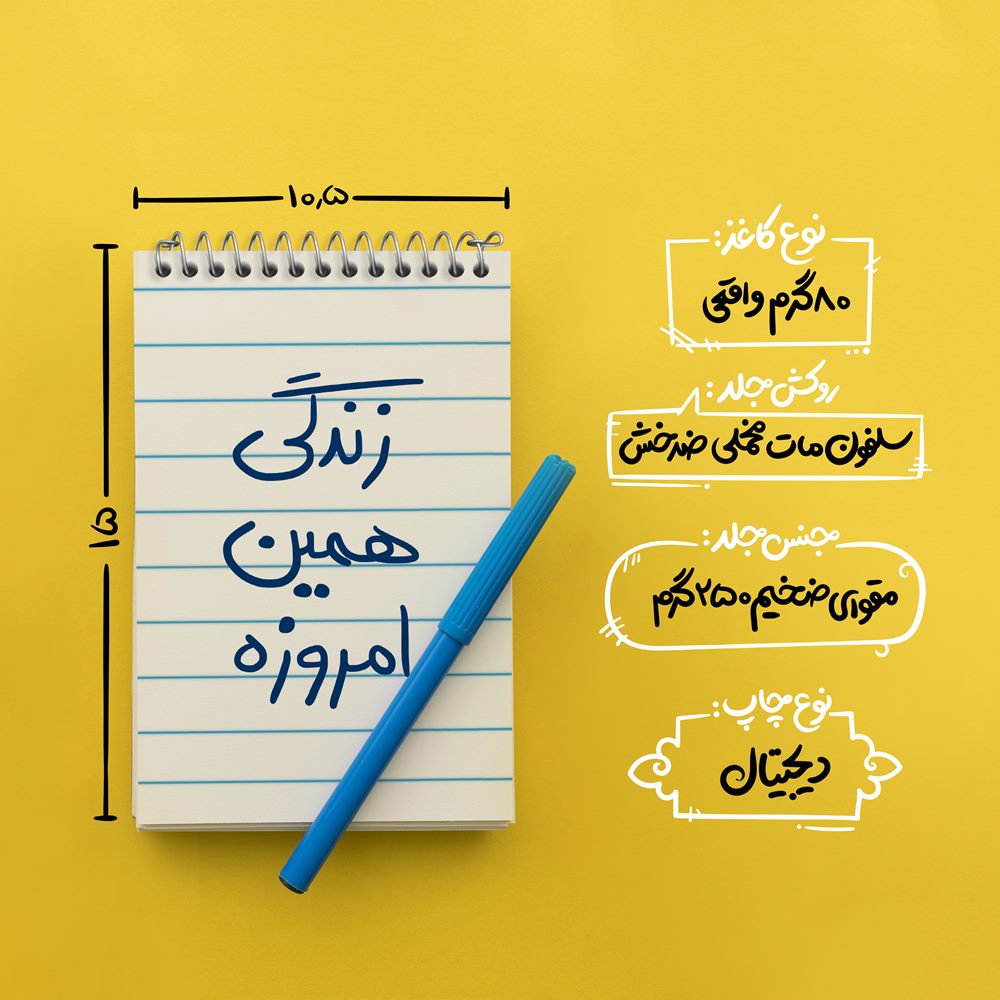 ۱۰٫۵
۱۵
زندگی
همین
امروزه
نوع کاغذ:
۸۰گرم واقعی
روکش جلد:
سلفون مات مخملی ضدخش
جنس جلد:
مقوای ضخیم ۲۵۰گرم
نوع چاپ:
دیجیتال